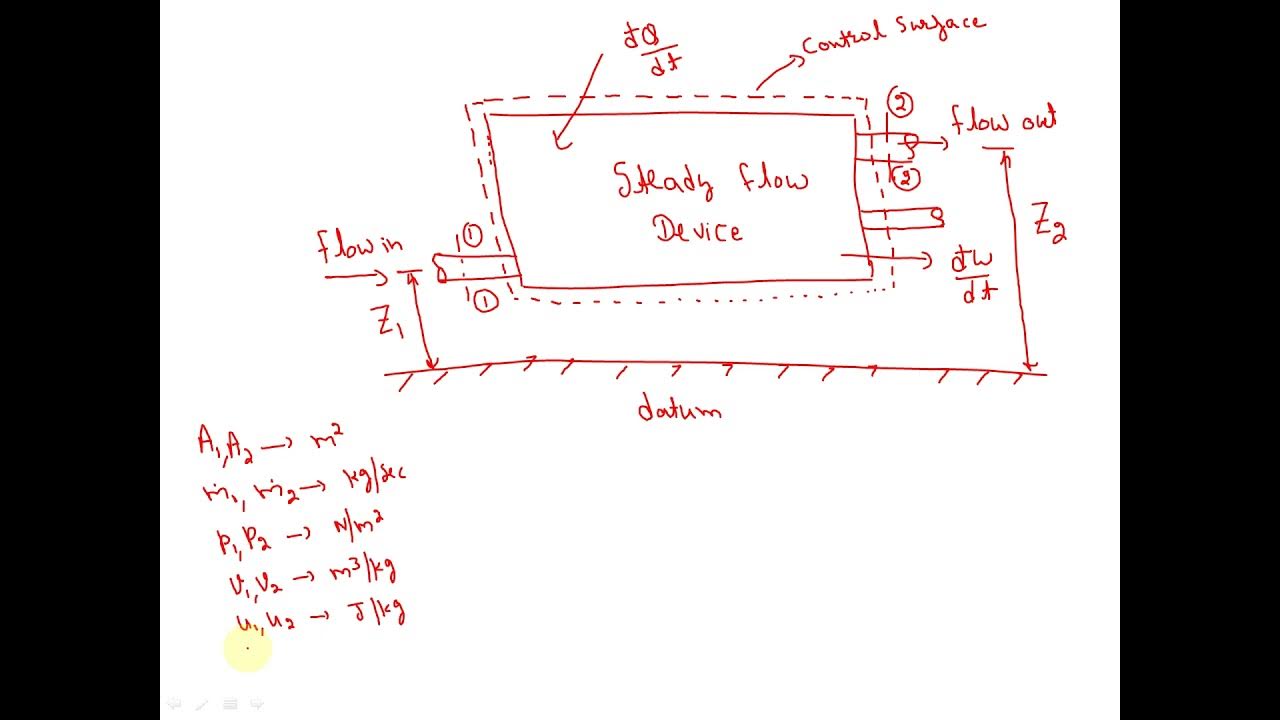 đQ
dt
Control Surface
②
flow out
Steady flow
Device
②
Z₂
flow in
①
đW
dt
①
Z₁
datum
A₁, A₂ → m²
ṁ₁, ṁ₂ → kg/sec
p₁, p₂ → N/m²
v₁, v₂ → m³/kg
u₁, u₂ → J/kg